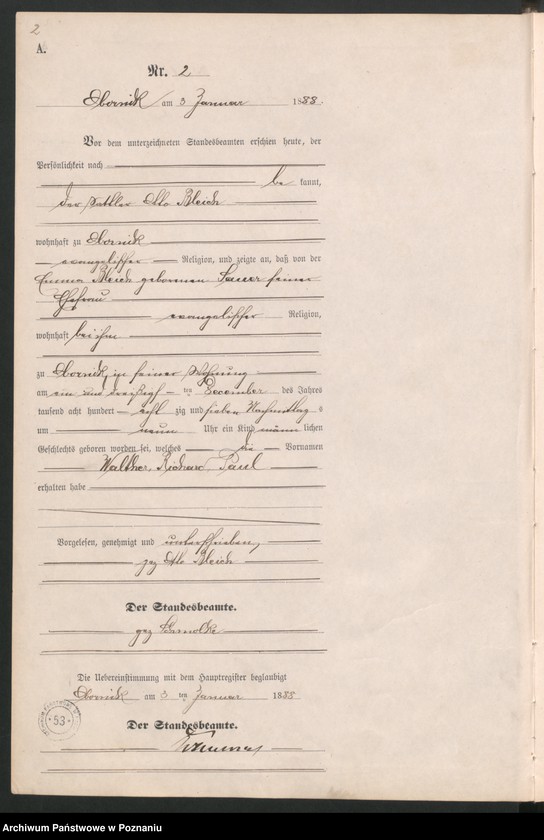 2
A.
Nr. 2
Obornik am 3 Januar 1888.
Vor dem unterzeichneten Standesbeamten erschien heute, der
Persönlichkeit nach
be kannt,
der Sattler Otto Bleich
wohnhaft zu Obornik
evangelischer Religion, und zeigte an, daß von der
Emma Bleich geborenen Sauer seiner
Ehefrau
evangelischer Religion,
wohnhaft bei ihm
zu Obornik, in seiner Wohnung
am ein und dreißig ten December des Jahres
tausend acht hundert acht zig und sieben Nachmittag s
um neun Uhr ein Kind männ lichen
Geschlechts geboren worden sei, welches die Vornamen
Walther, Richard, Paul
erhalten habe
Vorgelesen, genehmigt und unterschrieben,
gez Otto Bleich
Der Standesbeamte.
gez Schmolke
Die Uebereinstimmung mit dem Hauptregister beglaubigt
Obornik am 3 ten Januar 1888
Der Standesbeamte.
53
Archiwum Państwowe w Poznaniu